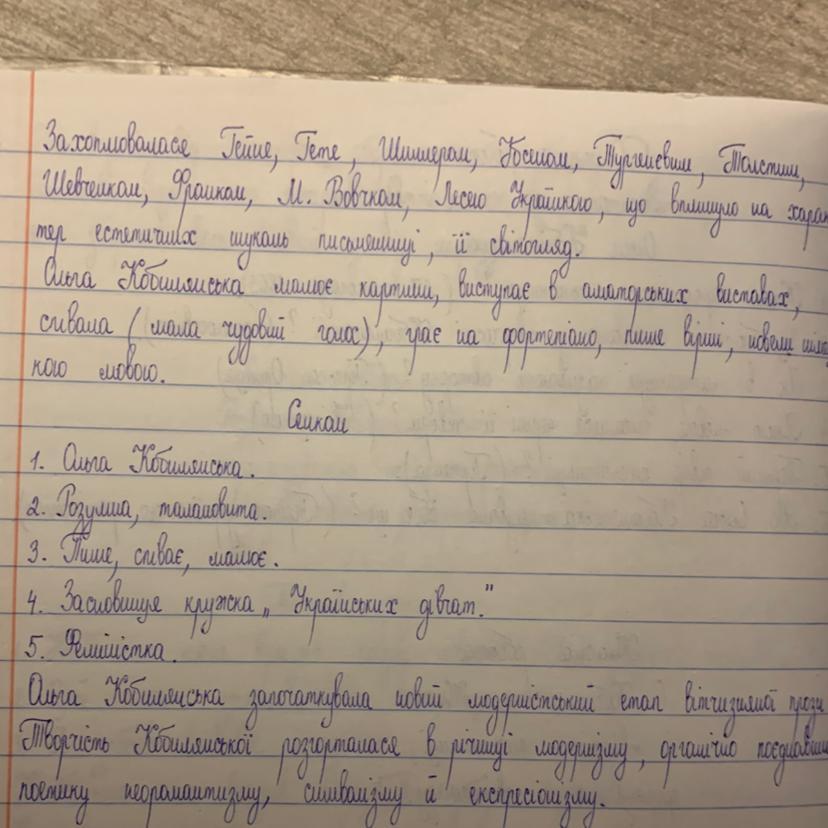 Захоплювалася Гейне, Гете, Шиллером, Ібсеном, Тургенєвим, Толстим,
Шевченком, Франком, М. Вовчком, Лесею Українкою, що вплинуло на харак
тер естетичних шукань письменниці, її світогляд.
Ольга Кобилянська малює картини, виступає в аматорських виставах,
співала (мала чудовий голос), грає на фортепіано, пише вірші, новели
кою мовою.
Сенкан
1. Ольга Кобилянська.
2. Розумна, талановита.
3. Пише, співає, малює.
4. Засновниця кружка „Українських дівчат."
5. Феміністка.
Ольга Кобилянська започаткувала новий модерністський етап вітчизняної прози
Творчість Кобилянської розгорталася в річищі модернізму, органічно поєднавши
поетику неоромантизму, символізму й експресіонізму.